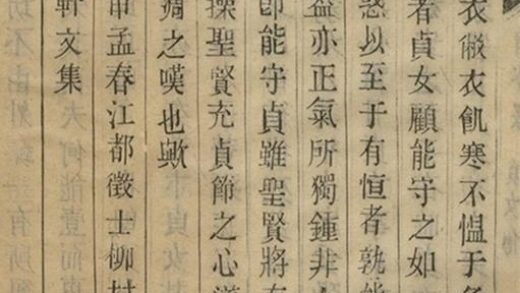 衣敝衣飢寒不慍于
者貞女顧能守之如
惑以至于有恒者孰
亦正氣所獨鍾非
即能守貞雖聖賢將
操聖賢充貞節之心
凋之嘆也歟
孟春江都徵士柳
軒文集